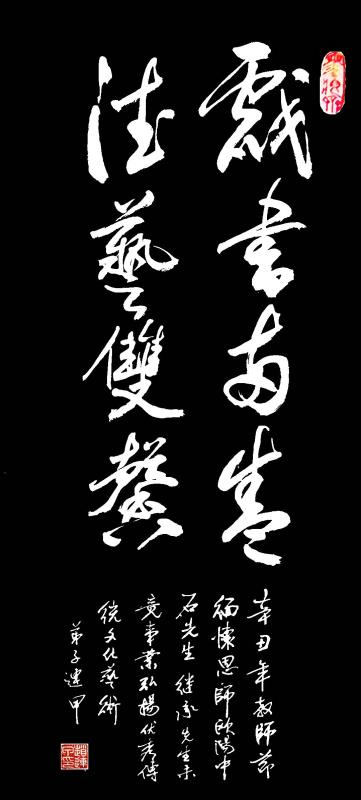 戲書両盛
德藝雙馨
辛丑年教師節
緬懷恩師欧陽中
石先生 继承先生未
竟事業弘揚优秀傳
统文化藝術
弟子連甲